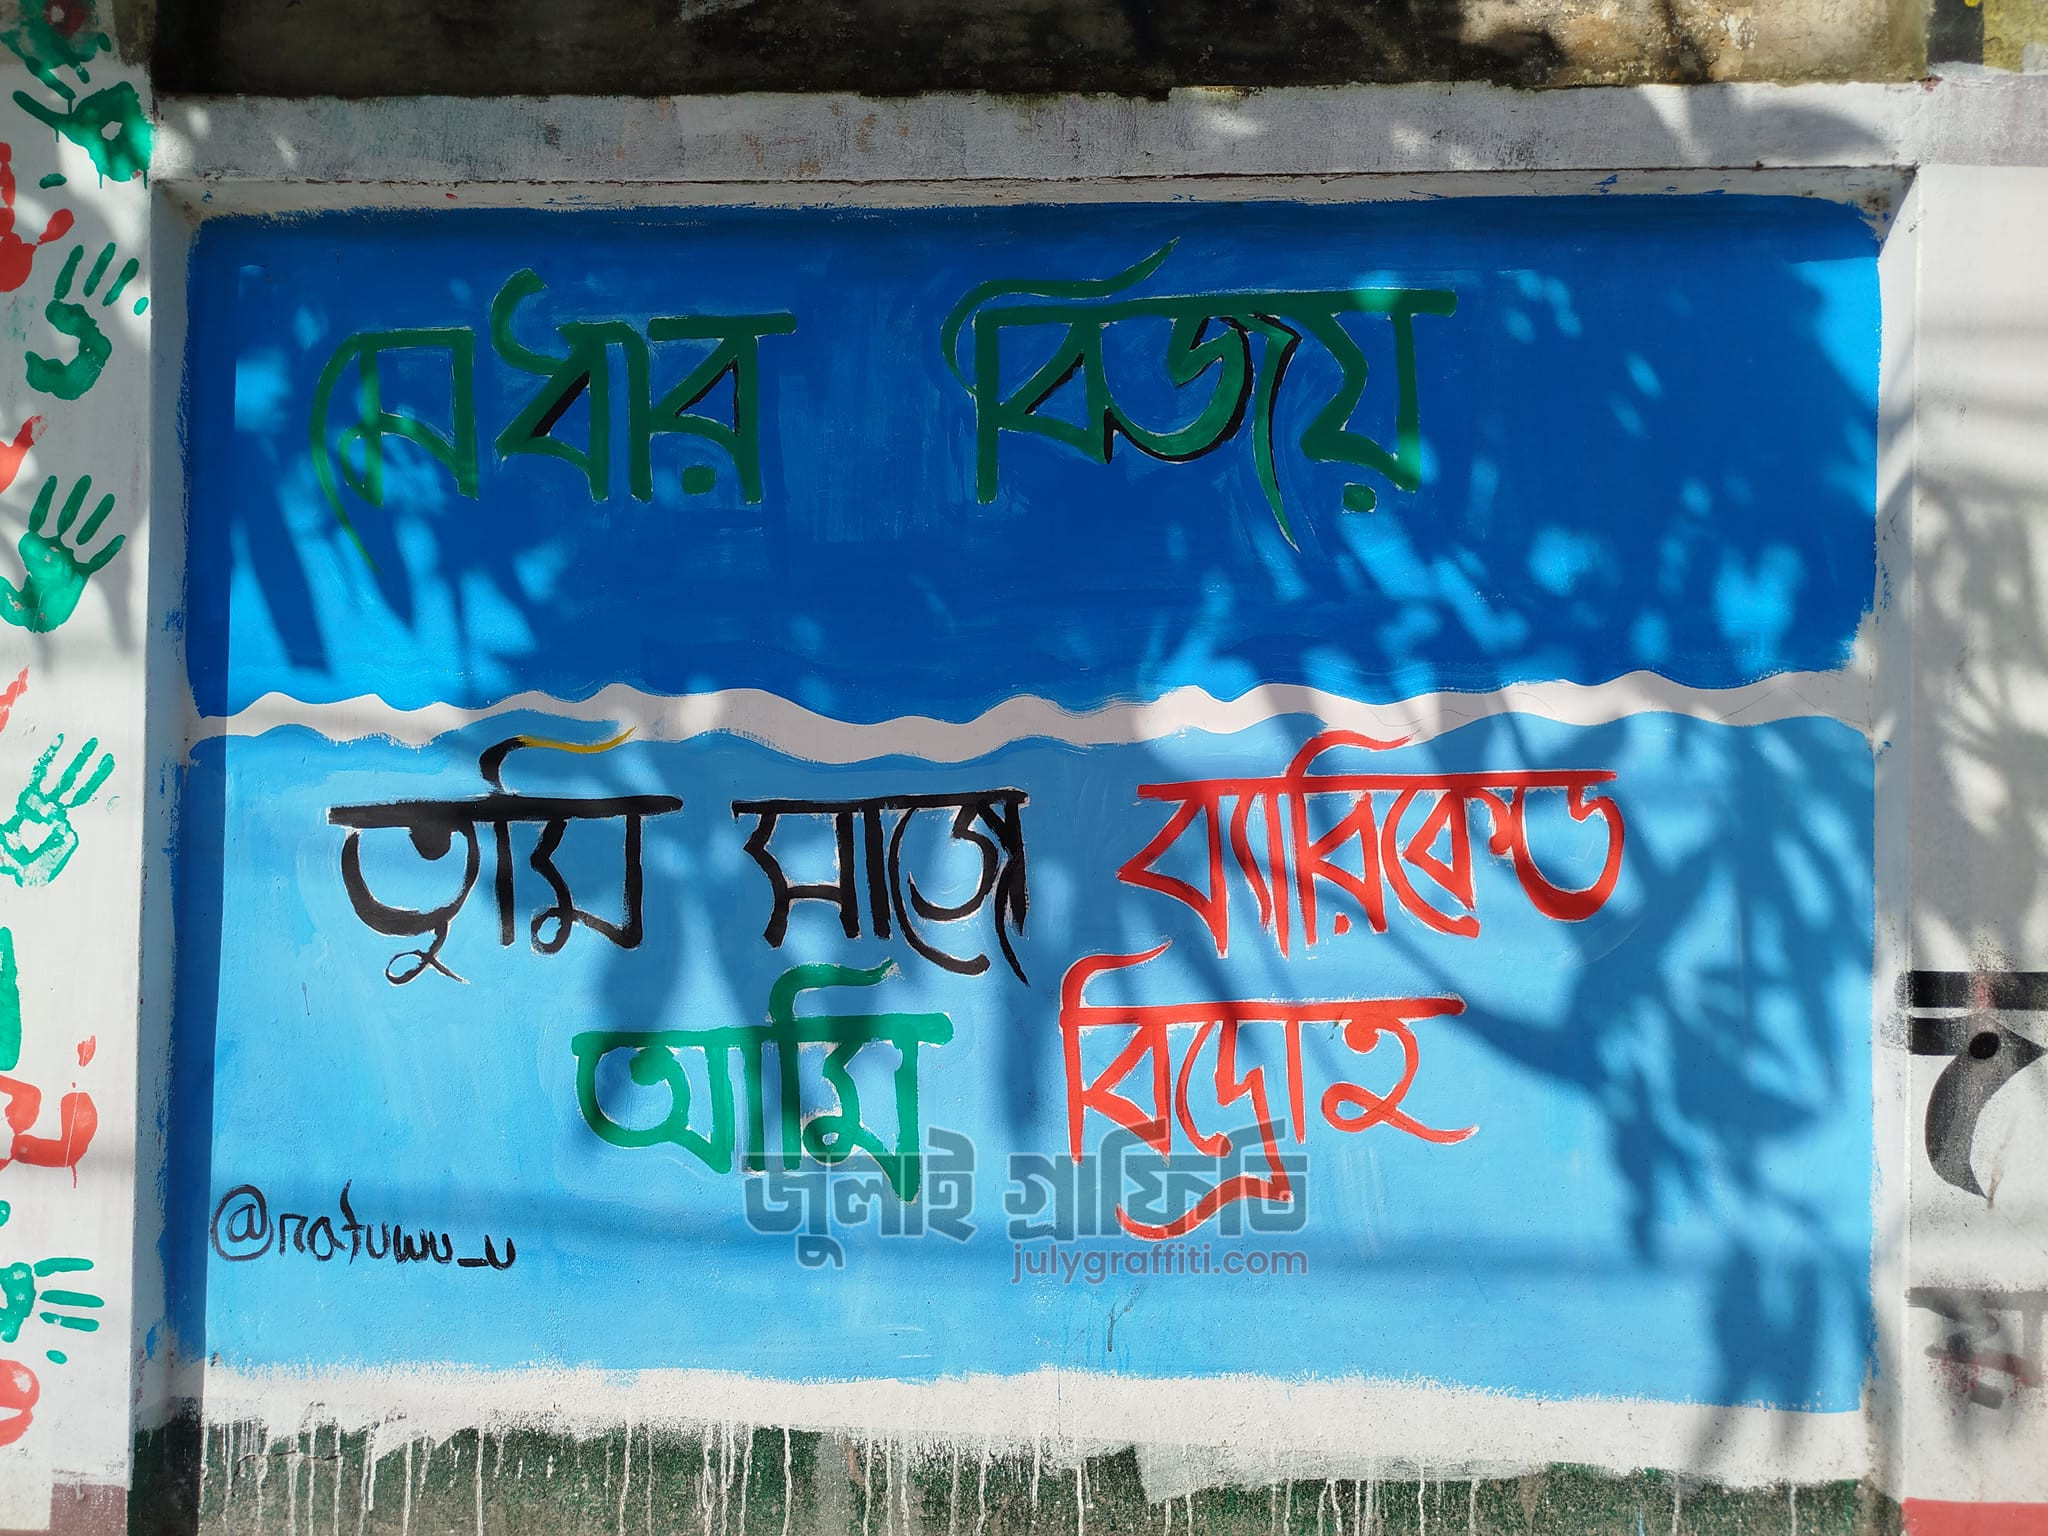 মেধার বিজয়
তুমি সাজে ব্যারিকেড
আমি বিদ্রোহ
@rafuwu_u
জুলাই গ্রাফিতি
julygraffiti.com